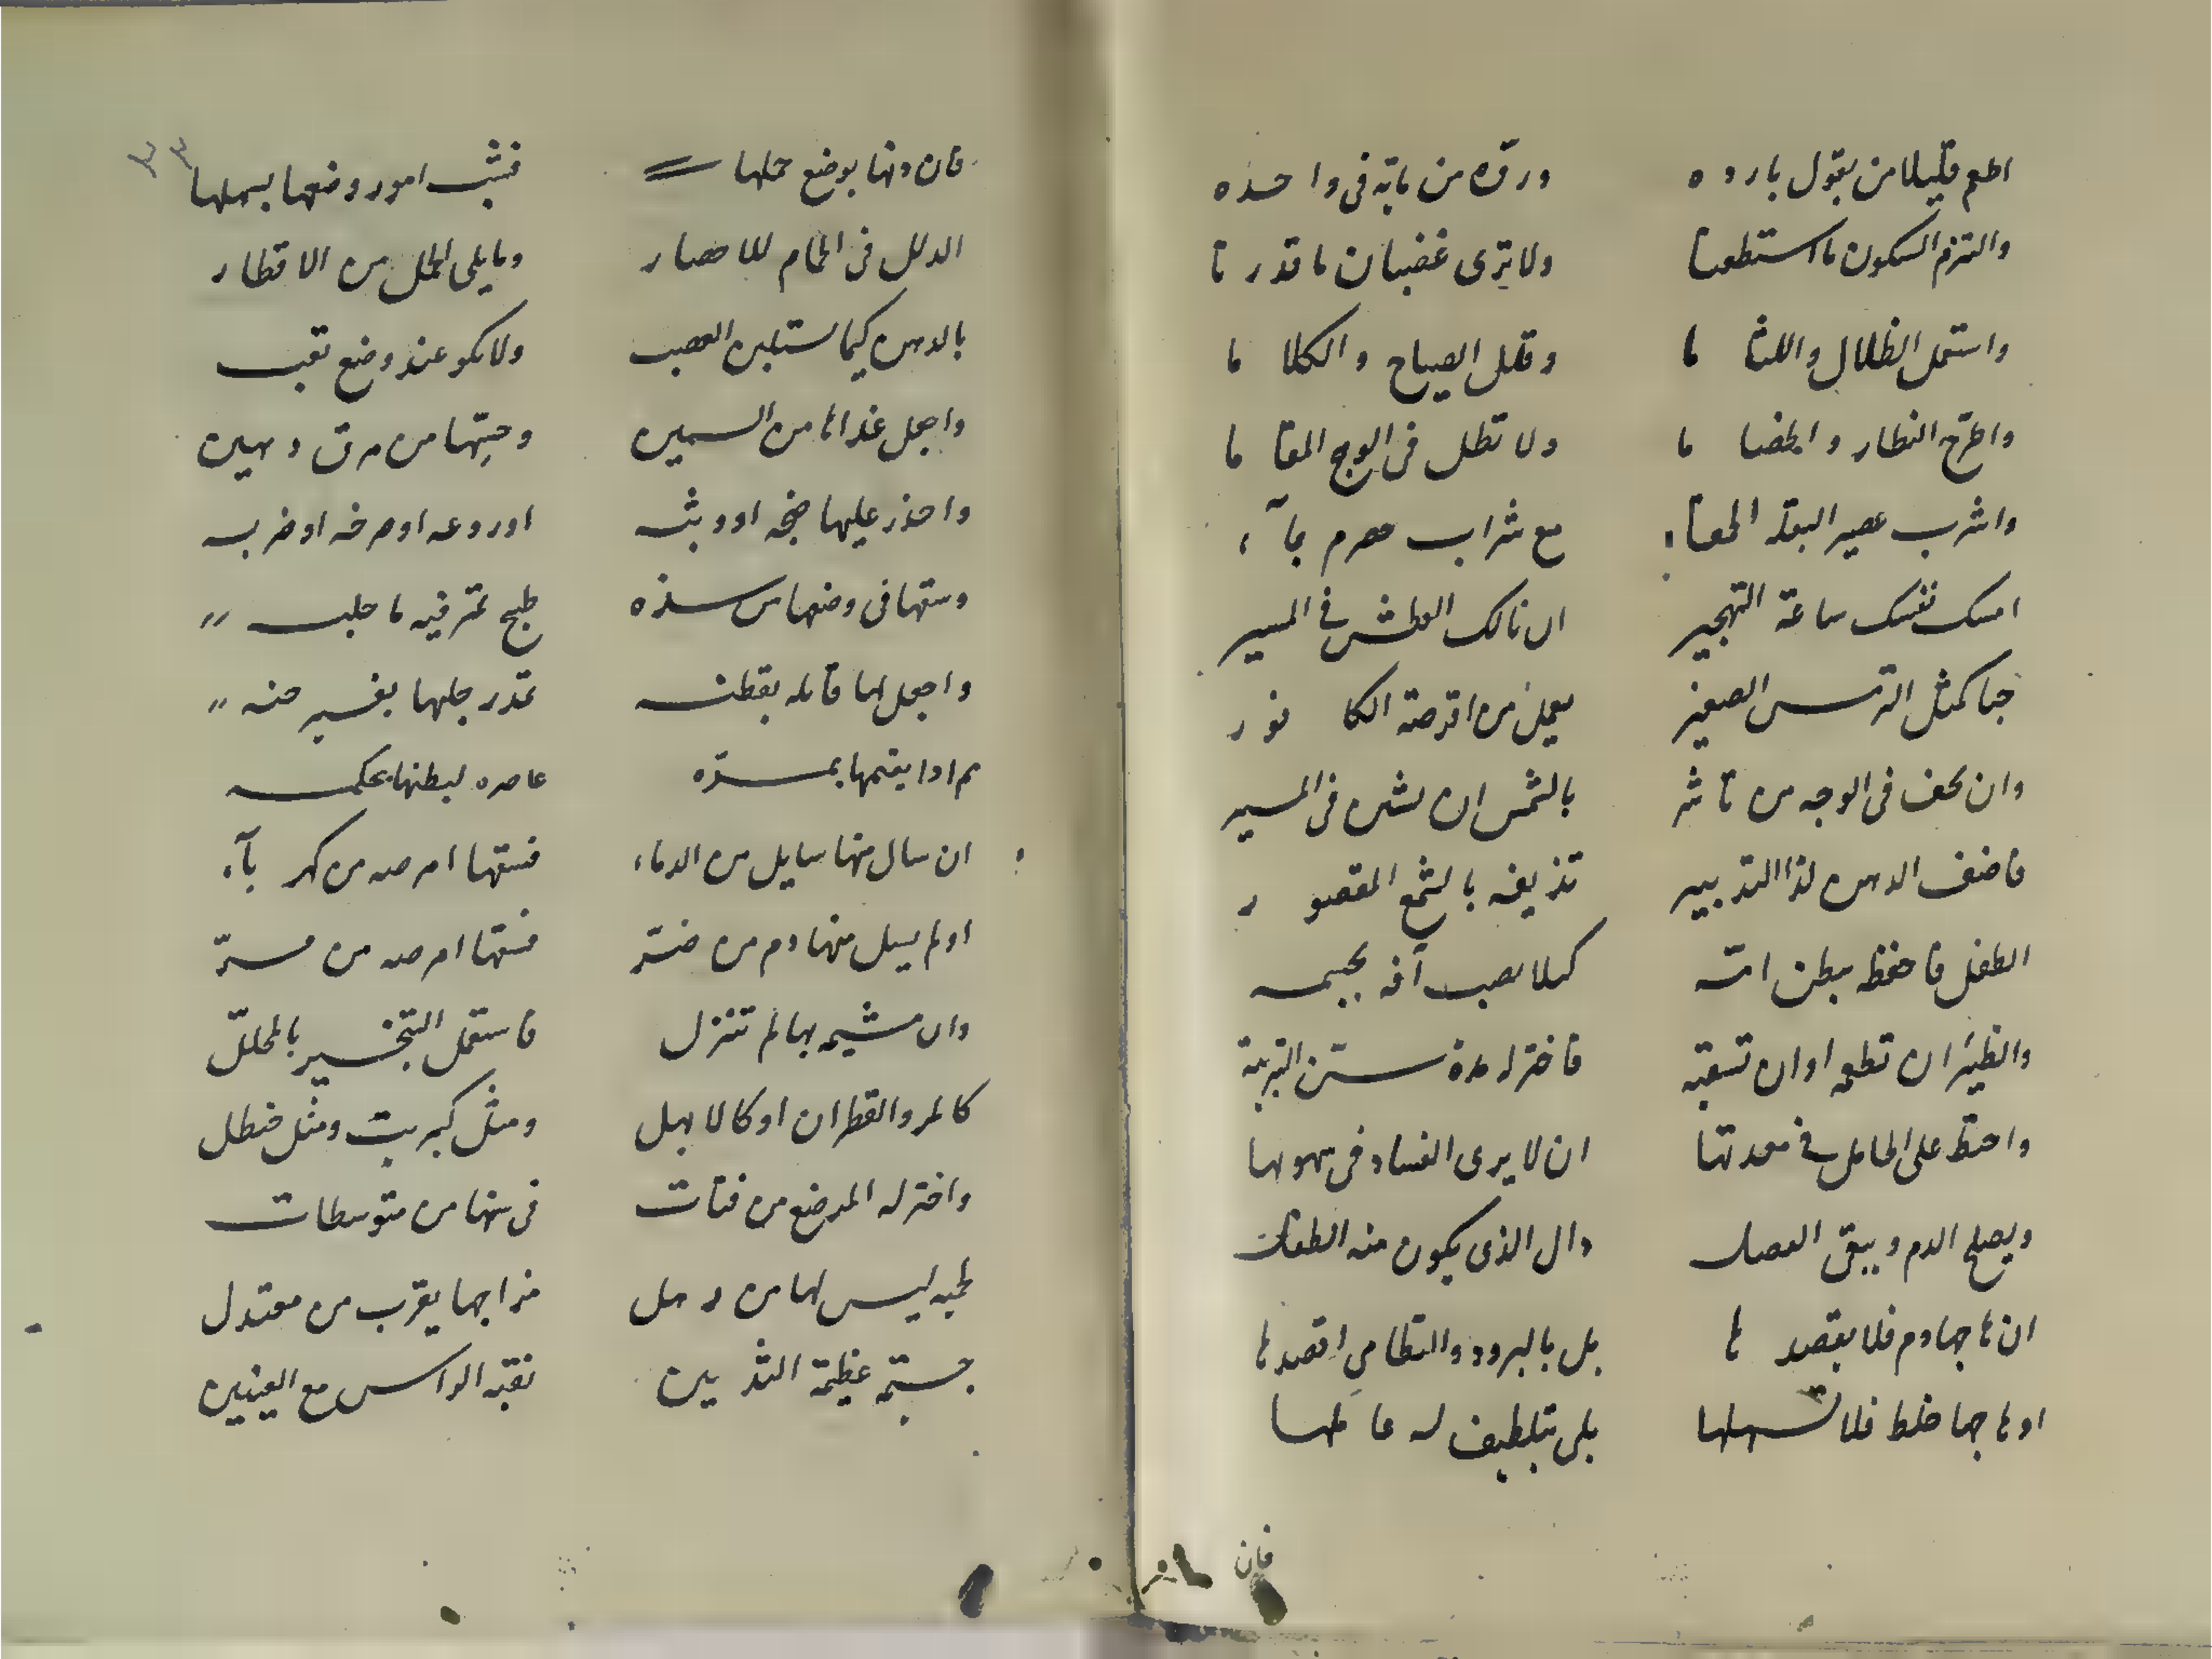 اطعم قليلا من بقول بارده ورقه من مائه في واحده
والتزم السكون ما استطعتا ولا ترى غضبان ما قدرتا
واستعمل الظلال واللثاما وقلل الصياح والكلاما
واطرح النظار والخصاما ولا تطل في الوهج المقاما
واشرب عصير البقلة الحمقاء مع شراب حصرم بماء
امسك بفيك ساعة التهجير ان نالك العطش في المسير
حبا كمثل الترمس الصغير يعمل من اقرصة الكافور
وان تخف في الوجه من تاثير بالشمس ان تشر في المسير
فاضف الدهن لذا التدبير تذيفه بالشمع المقصور
الطفل فاحفظه ببطن امه كيلا تصيب آفه بجسمه
والظئر ان تطعمه او ان تسقيه فاختر له مدة سن التربية
واحتط على الحامل في معدتها ان لا يرى الفساد في شهوتها
ويصلح الدم وينقى الفضل دال الذي يكون منه الطفل
ان هاجها دم فلا تفصدها بل بالبرود والتطامي اقصدها
او هاجها خلط فلا تسهلها بل بتلطيف له عاملها
فان
٣٣
فان دنها بوضع حملها فثب امور وضعها بسهلها
الدلك في الحمام للاحصار وما يلى الحمل من الاقطار
بالدهن كيما يستلين العصب ولا يكو عند وضع تعب
واجعل غذاها من السمين وحسها من مرق دهين
واحذر عليها ضجه او وثبه او روعه او صرخه او ضربه
وسقها في وضعها من شده طبيخ تمر فيه ما حلبه
واجعل لها قابله بفطنه تمدر رجلها بغير حنه
ثم اذا يقيمها بمره عاصره لبطنها بحكمه
ان سال منها سايل من الدماء فسقها اقرصه من كهرباء
او لم يسل منها دم من ضر فسقها اقرصه من مر
وان مشيمه بها لم تنزل فاستعمل التبخير بالمحلل
كالمر والقطران او كالابهل ومثل كبريت ومثل حنظل
واختر له المرضع من فتات في سنها من متوسطات
لحميه ليس لها من رهل مزاجها يقرب من معتدل
جسيمة عظيمة الثديين نقية الراس مع العينين